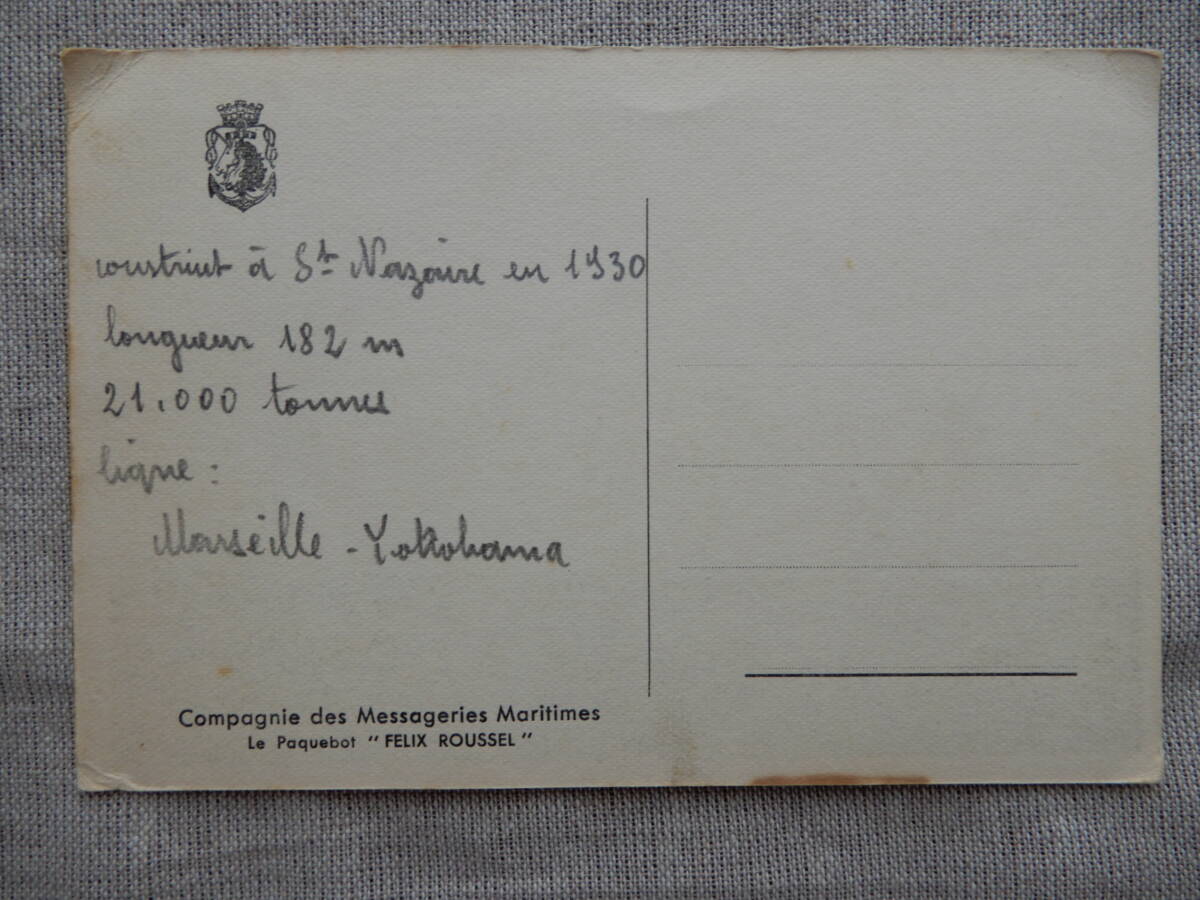 construit à St Nazaire en 1930
longueur 182 m
21.000 tonnes
ligne :
Marseille - Yokohama
Compagnie des Messageries Maritimes
Le Paquebot "FELIX ROUSSEL"